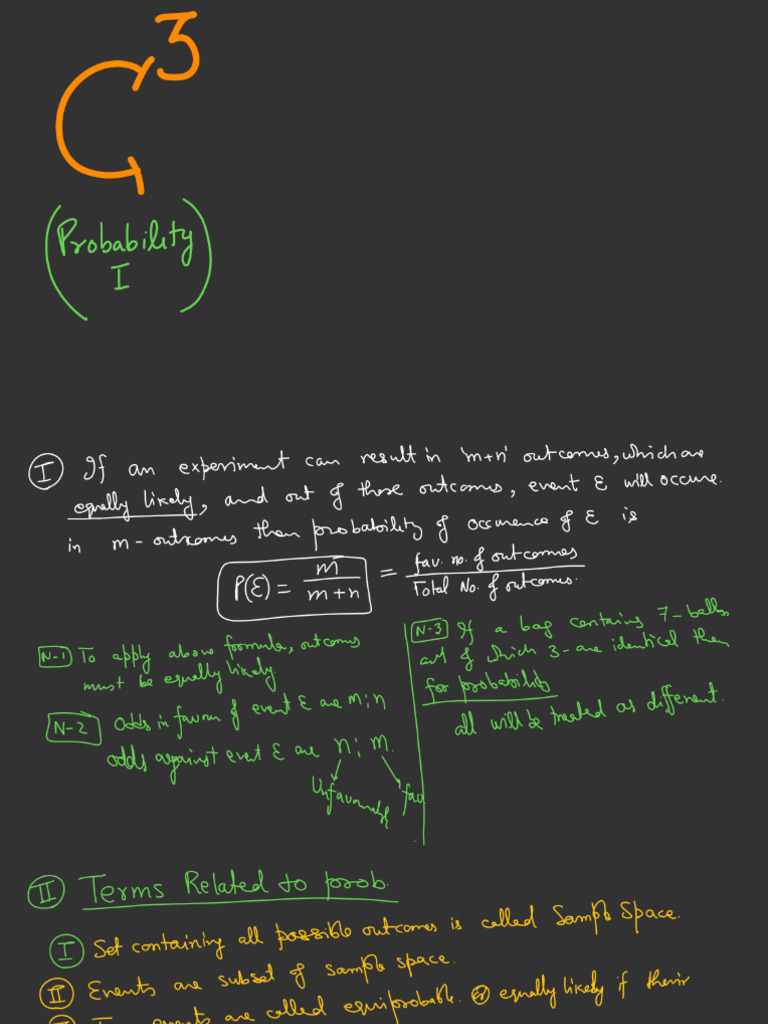 3
(Probability
I)
I If an experiment can result in 'm+n' outcomes, which are
equally likely, and out of these outcomes, event E will occure
in m-outcomes then probability of occurence of E is
P(E) = m/(m+n) = fav. no. of outcomes/Total No. of outcomes.
N-1 To apply above formula, outcomes
must be equally likely.
N-2 Odds in favour of event E are m:n
odds against event E are n:m.
Unfavourable fav
N-3 If a bag contains 7-balls
out of which 3-are identical then
for probability
all will be treated as different.
II Terms Related to prob.
I Set containing all possible outcomes is called Sample Space.
II Events are subset of sample space.
events are called equiprobable. or equally likely if their